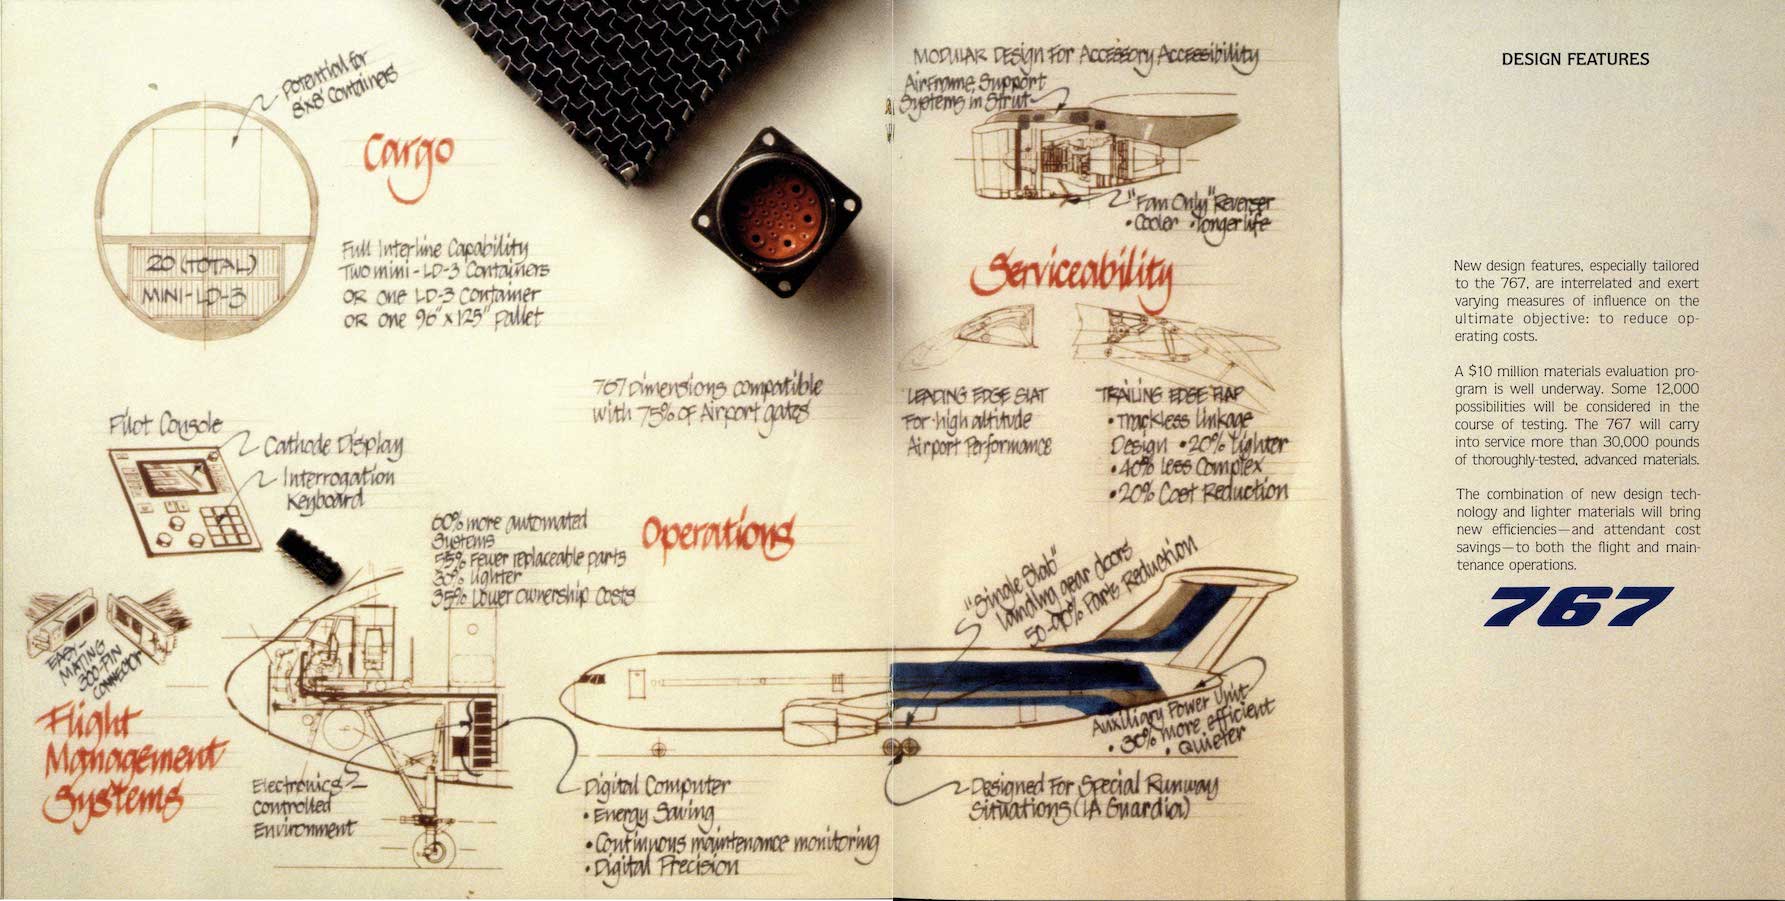 Potential for
8'x8' Containers
Cargo
20 (TOTAL)
MINI-LD-3
Full Interline Capability
Two mini-LD-3 Containers
OR one LD-3 Container
OR one 96" x 125" pallet
767 Dimensions compatible
with 75% of Airport gates
Pilot Console
Cathode Display
Interrogation
Keyboard
60% more automated
Systems
55% Fewer replaceable parts
30% Lighter
35% Lower ownership Costs
Operations
EASY-
MATING
300-PIN
CONNECTOR
Flight
Management
Systems
Electronics
Controlled
Environment
Digital Computer
• Energy Saving
• Continuous maintenance monitoring
• Digital Precision
MODULAR DESIGN FOR Accessory Accessibility
Airframe Support
Systems in Strut
"Fan Only" Reverser
• Cooler • longer life
Serviceability
LEADING EDGE SLAT
For high altitude
Airport Performance
TRAILING EDGE FLAP
• Trackless Linkage
Design • 20% Lighter
• 40% less Complex
• 20% Cost Reduction
"Single Slab"
landing gear doors
50-90% Parts Reduction
Auxiliary Power Unit
• 30% more efficient
• Quieter
Designed For Special Runway
Situations (LA Guardia)
DESIGN FEATURES
New design features, especially tailored
to the 767, are interrelated and exert
varying measures of influence on the
ultimate objective: to reduce op-
erating costs.
A $10 million materials evaluation pro-
gram is well underway. Some 12,000
possibilities will be considered in the
course of testing. The 767 will carry
into service more than 30,000 pounds
of thoroughly-tested, advanced materials.
The combination of new design tech-
nology and lighter materials will bring
new efficiencies—and attendant cost
savings—to both the flight and main-
tenance operations.
767